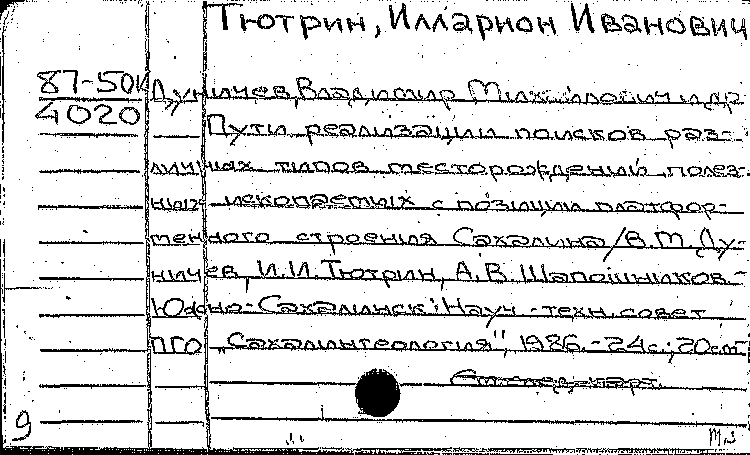 Тютрин, Илларион Иванович
87-50к
4020
Дуничев, Владимир Михайлович и др.
Пути реализации поисков раз-
личных типов месторождений полез-
ных ископаемых с позиции платфор-
менного строения Сахалина/В.М. Ду-
ничев, И.И. Тютрин, А.В. Шапошников.-
Южно-Сахалинск: Науч.-техн. совет
ПГО „Сахалингеология", 1986.-24с.; 20см.
9